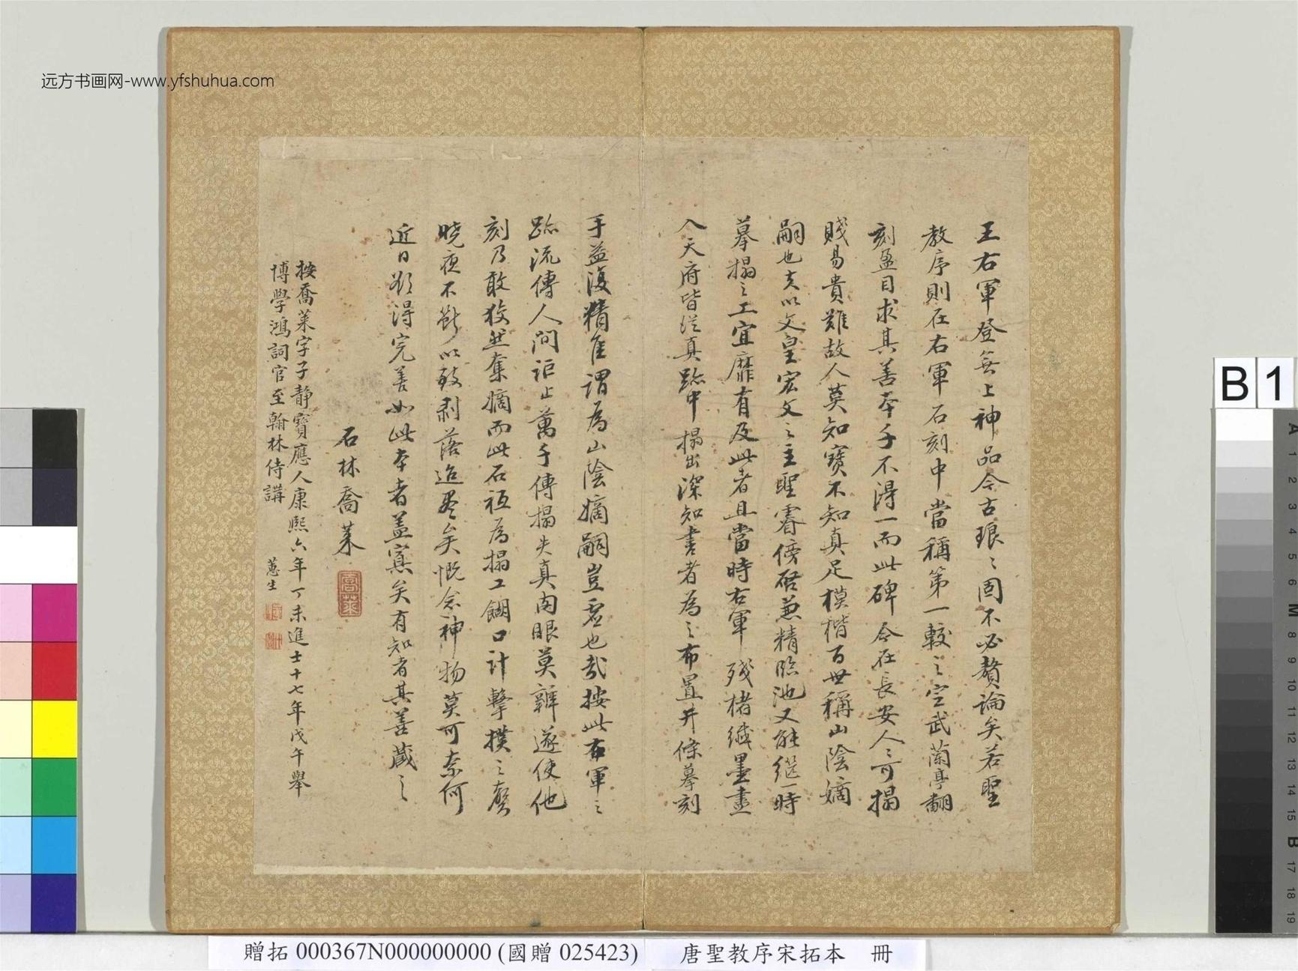 远方书画网-www.yfshuhua.com
王右軍登無上神品今古琅〻固不必贅論矣若聖
教序則在右軍石刻中當稱第一較之定武蘭亭翻
刻盈目求其善本千不得一而此碑今在長安人〻可搨
賤易貴難故人莫知寶不知真足模楷百世稱山陰嫡
嗣也夫以文皇宏文之主聖睿傍啓兼精臨池又能繼時
摹搨之工宜靡有及此者且當時右軍殘楮纖墨盡
入天府皆從真跡中搨出深知書者為之布置井條摹刻
手益復精隹謂為山陰嫡嗣豈虛也哉按此右軍之
跡流傳人間詎止萬千傳搨失真肉眼莫辨遂使他
刻乃敢狡然奪嫡而此石祗為搨工餬口計擊撲之聲
曉夜不斷以致剥落迨盡矣慨念神物莫可奈何
近日欲得完善如此本者蓋寡矣有知者其善藏之
石林喬萊
喬萊
按喬萊字子靜寶應人康熙六年丁未進士十七年戊午舉
博學鴻詞官至翰林侍講
蕙生
B1
贈拓 000367N000000000 (國贈 025423)
唐聖教序宋拓本 冊